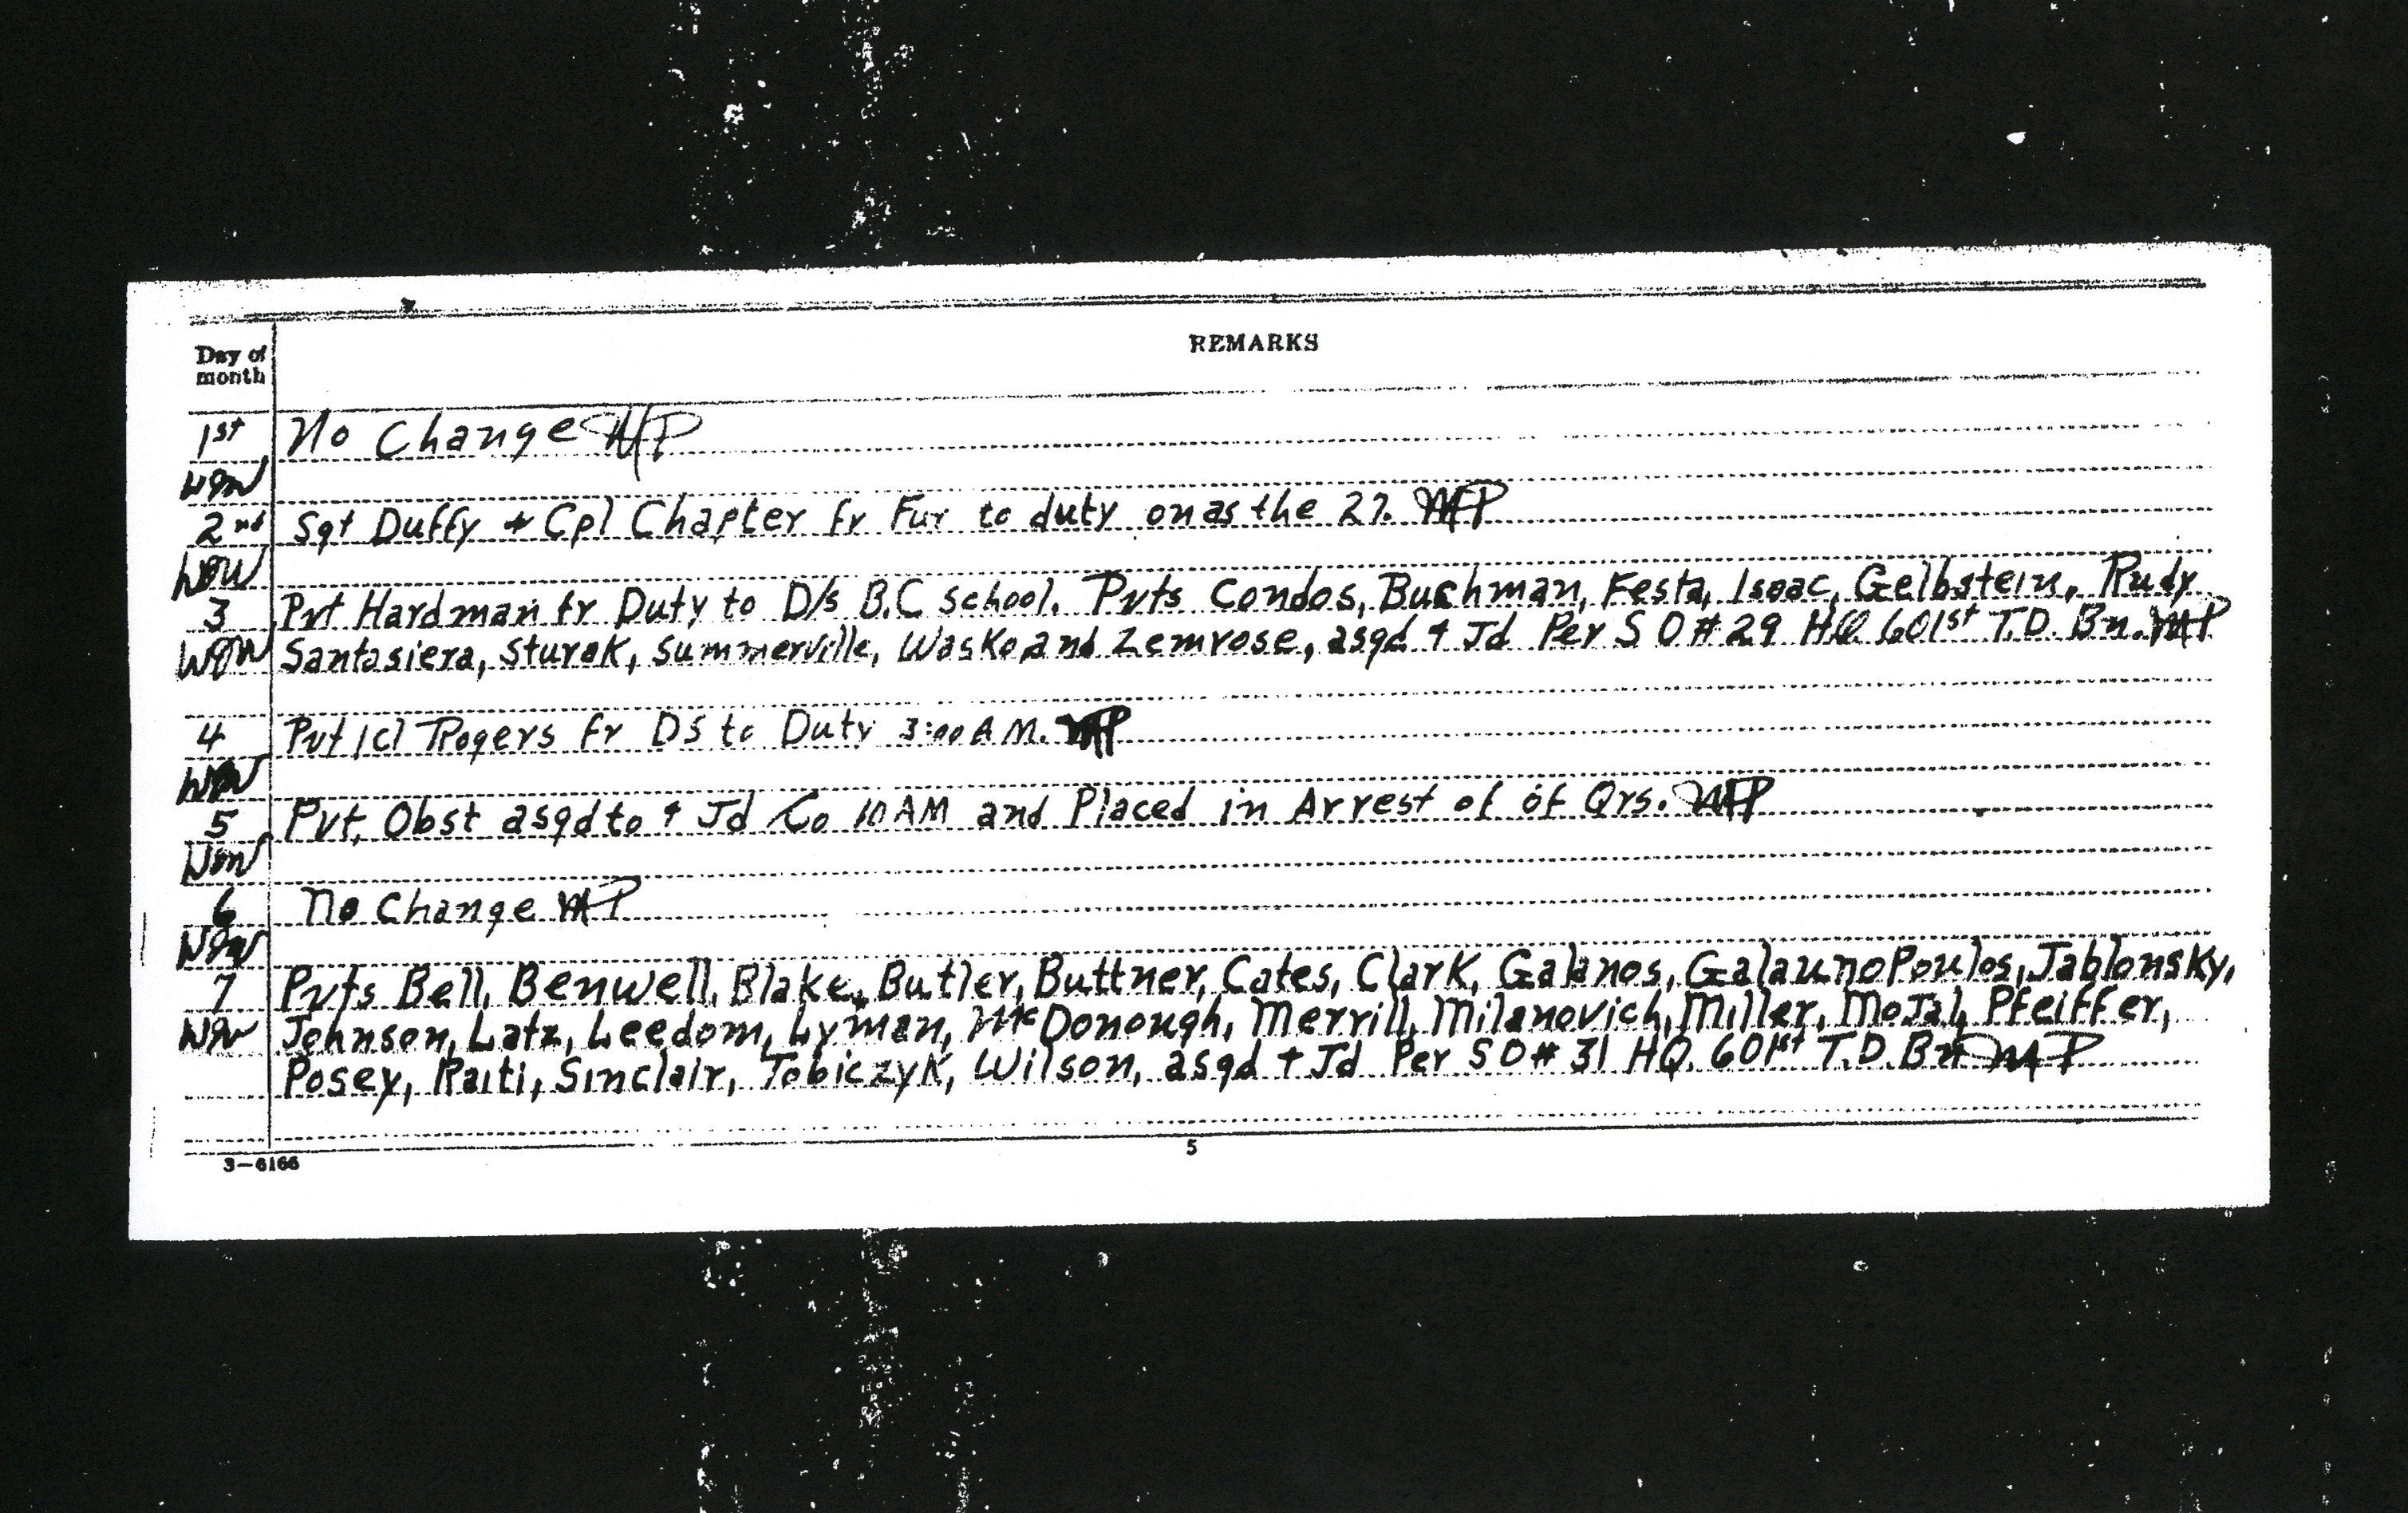 REMARKS
Day of
month
1st No Change MP
2nd Sgt Duffy + Cpl Chapter fr Fur to duty on as the 27. MP
3 Pvt Hardman fr Duty to D/S B.C school. Pvts Condos, Buchman, Festa, Isaac, Gelbstein, Rudy
Santasiera, Sturak, Summerville, Wasko and Zemrose, asgd + Jd Per S O # 29 HQ 601st T.D. Bn. MP
4 Pvt 1cl Rogers fr DS to Duty 3:00 A M. MP
5 Pvt. Obst asgd to + Jd Co 10 AM and Placed in Arrest of of Qrs. MP
6 No Change MP
7 Pvts Bell, Benwell, Blake, Butler, Buttner, Cates, Clark, Galanos, GalaunoPoulos, Jablonsky,
Johnson, Latz, Leedom, Lyman, McDonough, Merrill, Milanovich, Miller, MoJal, Pfeiffer,
Posey, Raiti, Sinclair, Tobiczyk, Wilson, asgd + Jd Per S O # 31 HQ. 601st T.D. Bn MP
3-6166
5